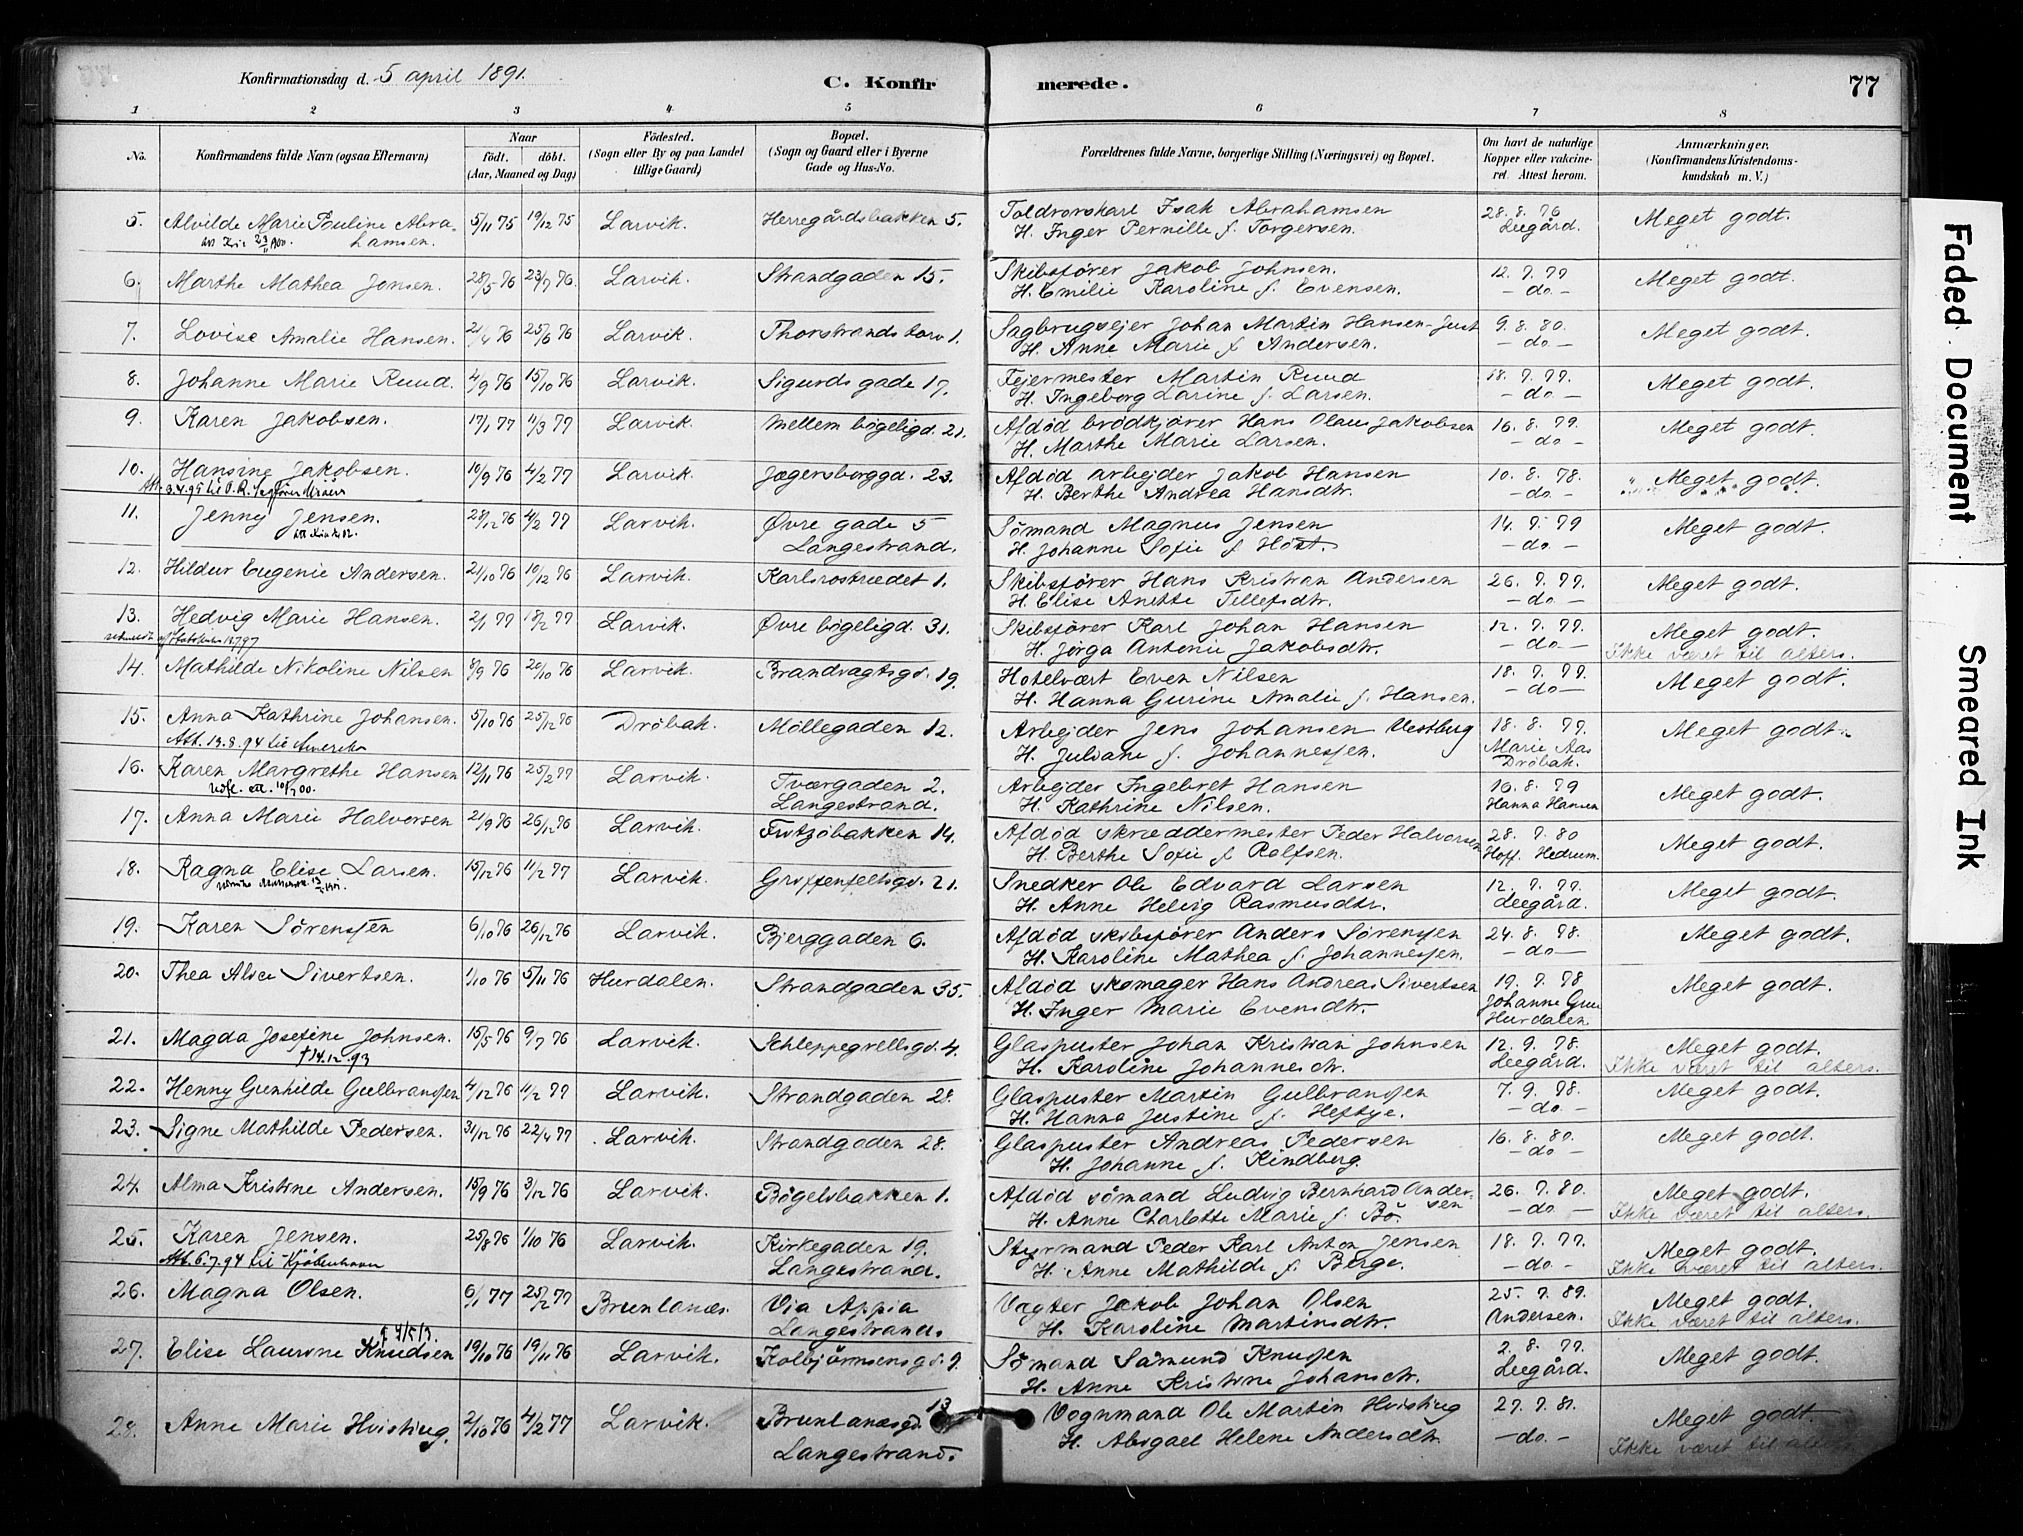 Konfirmationsdag d. 5 april 1891. C. Konfir merede. 77
1 2 3 4 5 6 7 8
No. Konfirmandens fulde Navn (ogsaa Efternavn) Naar födt. döbt. (Aar, Maaned og Dag) Födested. (Sogn eller By og paa Landet tillige Gaard) Bopæl. (Sogn og Gaard eller i Byerne Gade og Hus-No. Forældrenes fulde Navne, borgerlige Stilling (Næringsvei) og Bopæl. Om havt de naturlige Kopper eller vakcineret. Attest herom. Anmærkninger. (Konfirmandens Kristendomskundskab m. V.)
5. Alvilde Marie Pouline Abra- 5/11 75 19/12 75 Larvik. Herregårdsbakken 5. Toldrorskarl Isak Abrahamsen 28. 8. 76 Meget godt.
hamsen. H. Inger Pernille f. Torgersen. Leegård.
6. Marthe Mathea Jonsen. 28/5 76 23/7 76. Larvik. Strandgaden 15. Skibsfører Jakob Johnsen. 12. 7. 77 Meget godt.
H. Emilie Karoline f. Evensen. - do -
7. Lovise Amalie Hansen. 21/4 76 25/6 76 Larvik. Thorstrands torv 1. Sagbrugsejer Johan Martin Hansen-Just 9. 8. 80. Meget godt.
H. Anne Marie f. Andersen. - do -
8. Johanne Marie Ruud. 4/9 76 15/10 76 Larvik. Sigurds gade 17. Fejermester Martin Ruud 18. 7. 77. Meget godt.
H. Ingeborg Larine f. Larsen. - do -
9. Karen Jakobsen. 17/1 77 11/3 77 Larvik. Mellem bøgeligd. 21. Afdød brødkjører Hans Olaus Jakobsen 16. 8. 79. Meget godt.
H. Marthe Marie Larsen. - do -
10. Hansine Jakobsen. 10/9 76 4/2 77 Larvik. Jægersborggd. 23. Afdød arbejder Jakob Hansen 10. 8. 78. Meget godt.
H. Berthe Andrea Hansdtr. - do -
11. Jenny Jensen. 28/12 76 4/2 77 Larvik. Øvre gade 5 Sømand Magnus Jensen 14. 7. 79 Meget godt.
Langestrand. H. Johanne Sofie f Høst. - do -
12. Hildur Eugenie Andersen. 21/10 76 10/12 76 Larvik. Karlsrostrædet 1. Skibsfører Hans Kristian Andersen 26. 7. 77. Meget godt.
H. Elise Anette Tellefsdtr. - do -
13. Hedvig Marie Hansen. 2/1 77 18/2 77 Larvik. Øvre bøgeligd. 31. Skibsfører Karl Johan Hansen 12. 7. 77. Meget godt.
H. Jørga Antonie Jakobsdtr. - do - Ikke været til alters.
14. Mathilde Nikoline Nilsen 8/9 76 20/10 76 Larvik. Brandvagtsgd. 19. Hotelvært Even Nilsen 18. 7. 77. Meget godt.
H. Hanna Gurine Amalie f. Hansen. - do -
15. Anna Kathrine Johansen. 5/10 76 25/12 76 Drøbak. Møllegaden 12. Arbejder Jens Johansen Vestbug 18. 8. 77. Meget godt.
Att. 13.8.94 til Amerika H. Juliane f. Johannessen. Marie Aas
Drøbak.
16. Karen Margrethe Hansen 12/11 76 25/2 77 Larvik. Tværgaden 2. Arbejder Ingebret Hansen 16. 8. 79 Meget godt.
Langestrand. H. Kathrine Nilsen. Hanna Hansen
17. Anna Marie Halvorsen 21/9 76 26/12 76 Larvik. Fritzøbakken 14. Afdød skræddermester Peder Halvorsen 28. 7. 80 Meget godt.
H. Berthe Sofie f. Rolfsen. Hoff. Hedrum.
18. Ragna Elise Larsen. 15/12 76 11/2 77 Larvik. Griffenfeltsgd. 21. Snedker Ole Edvard Larsen 12. 7. 77. Meget godt.
H. Anne Helvig Rasmusdtr. Leegård.
19. Karen Sørenssen 6/10 76 26/12 76 Larvik. Bjerggaden 6. Afdød skibsfører Anders Sørenssen 24. 8. 78. Meget godt.
H. Karoline Mathea f. Johannessen. - do -
20. Thea Alice Sivertsen. 1/10 76 5/11 76 Hurdalen. Strandgaden 35. Afdød skomager Hans Andreas Sivertsen 19. 7. 78 Meget godt.
H. Inger Marie Evensdtr. Johanne Grue
Hurdalen.
21. Magda Josefine Johnsen. 15/5 76 9/7 76 Larvik. Schleppegrellsgd. 4. Glaspuster Johan Kristian Johnsen 12. 9. 78. Meget godt.
† 14.12.93 H. Karoline Johannesdtr. Leegård. Ikke været til alters.
22. Henny Gunhilde Gulbranssen 4/12 76 11/2 77 Larvik. Strandgaden 28. Glaspuster Martin Gulbranssen 7. 9. 78. Meget godt.
H. Hanna Justine f. Heftye. - do -
23. Signe Mathilde Pedersen. 31/12 76 22/4 77 Larvik. Strandgaden 28. Glaspuster Andreas Pedersen 16. 8. 80. Meget godt.
H. Johanne f. Kindberg. - do -
24. Alma Kristine Andersen. 15/9 76 3/12 76 Larvik. Bøgelsbakken 1. Afdød sømand Ludvig Bernhard Ander- 26. 7. 80. Meget godt.
sen
H. Anne Charlotte Marie f. Bö. - do - Ikke været til alters.
25. Karen Jensen. 25/8 76 1/10 76 Larvik. Kirkegaden 19. Styrmand Peder Karl Anton Jensen 18. 7. 77. Meget godt.
Att. 6.7.94 til Kjöbenhavn Langestrand. H. Anne Mathilde f. Berge. - do - Ikke været til alters.
26. Magna Olsen. 6/1 77 25/2 77 Brunlanæs. Via Appia Vagter Jakob Johan Olsen 25. 7. 89. Meget godt.
Langestrand. H. Karoline Martinsdtr. Andersen. Ikke været til alters.
27. Elise Laurine Knudsen 19/10 76 19/11 76 Larvik. Kolbjørnsensgd. 9. Sømand Samund Knussen 2. 8. 77. Meget godt.
H. Anne Kristine Johansdtr. Leegård.
28. Anne Marie Hvisting. 2/10 76 4/2 77 Larvik. Brunlanæsgd. 13 Vognmand Ole Martin Hvisting 27. 7. 81. Meget godt.
Langestrand. H. Abigael Helene Andersdtr. - do - Ikke været til alters
Faded Document
Smeared Ink